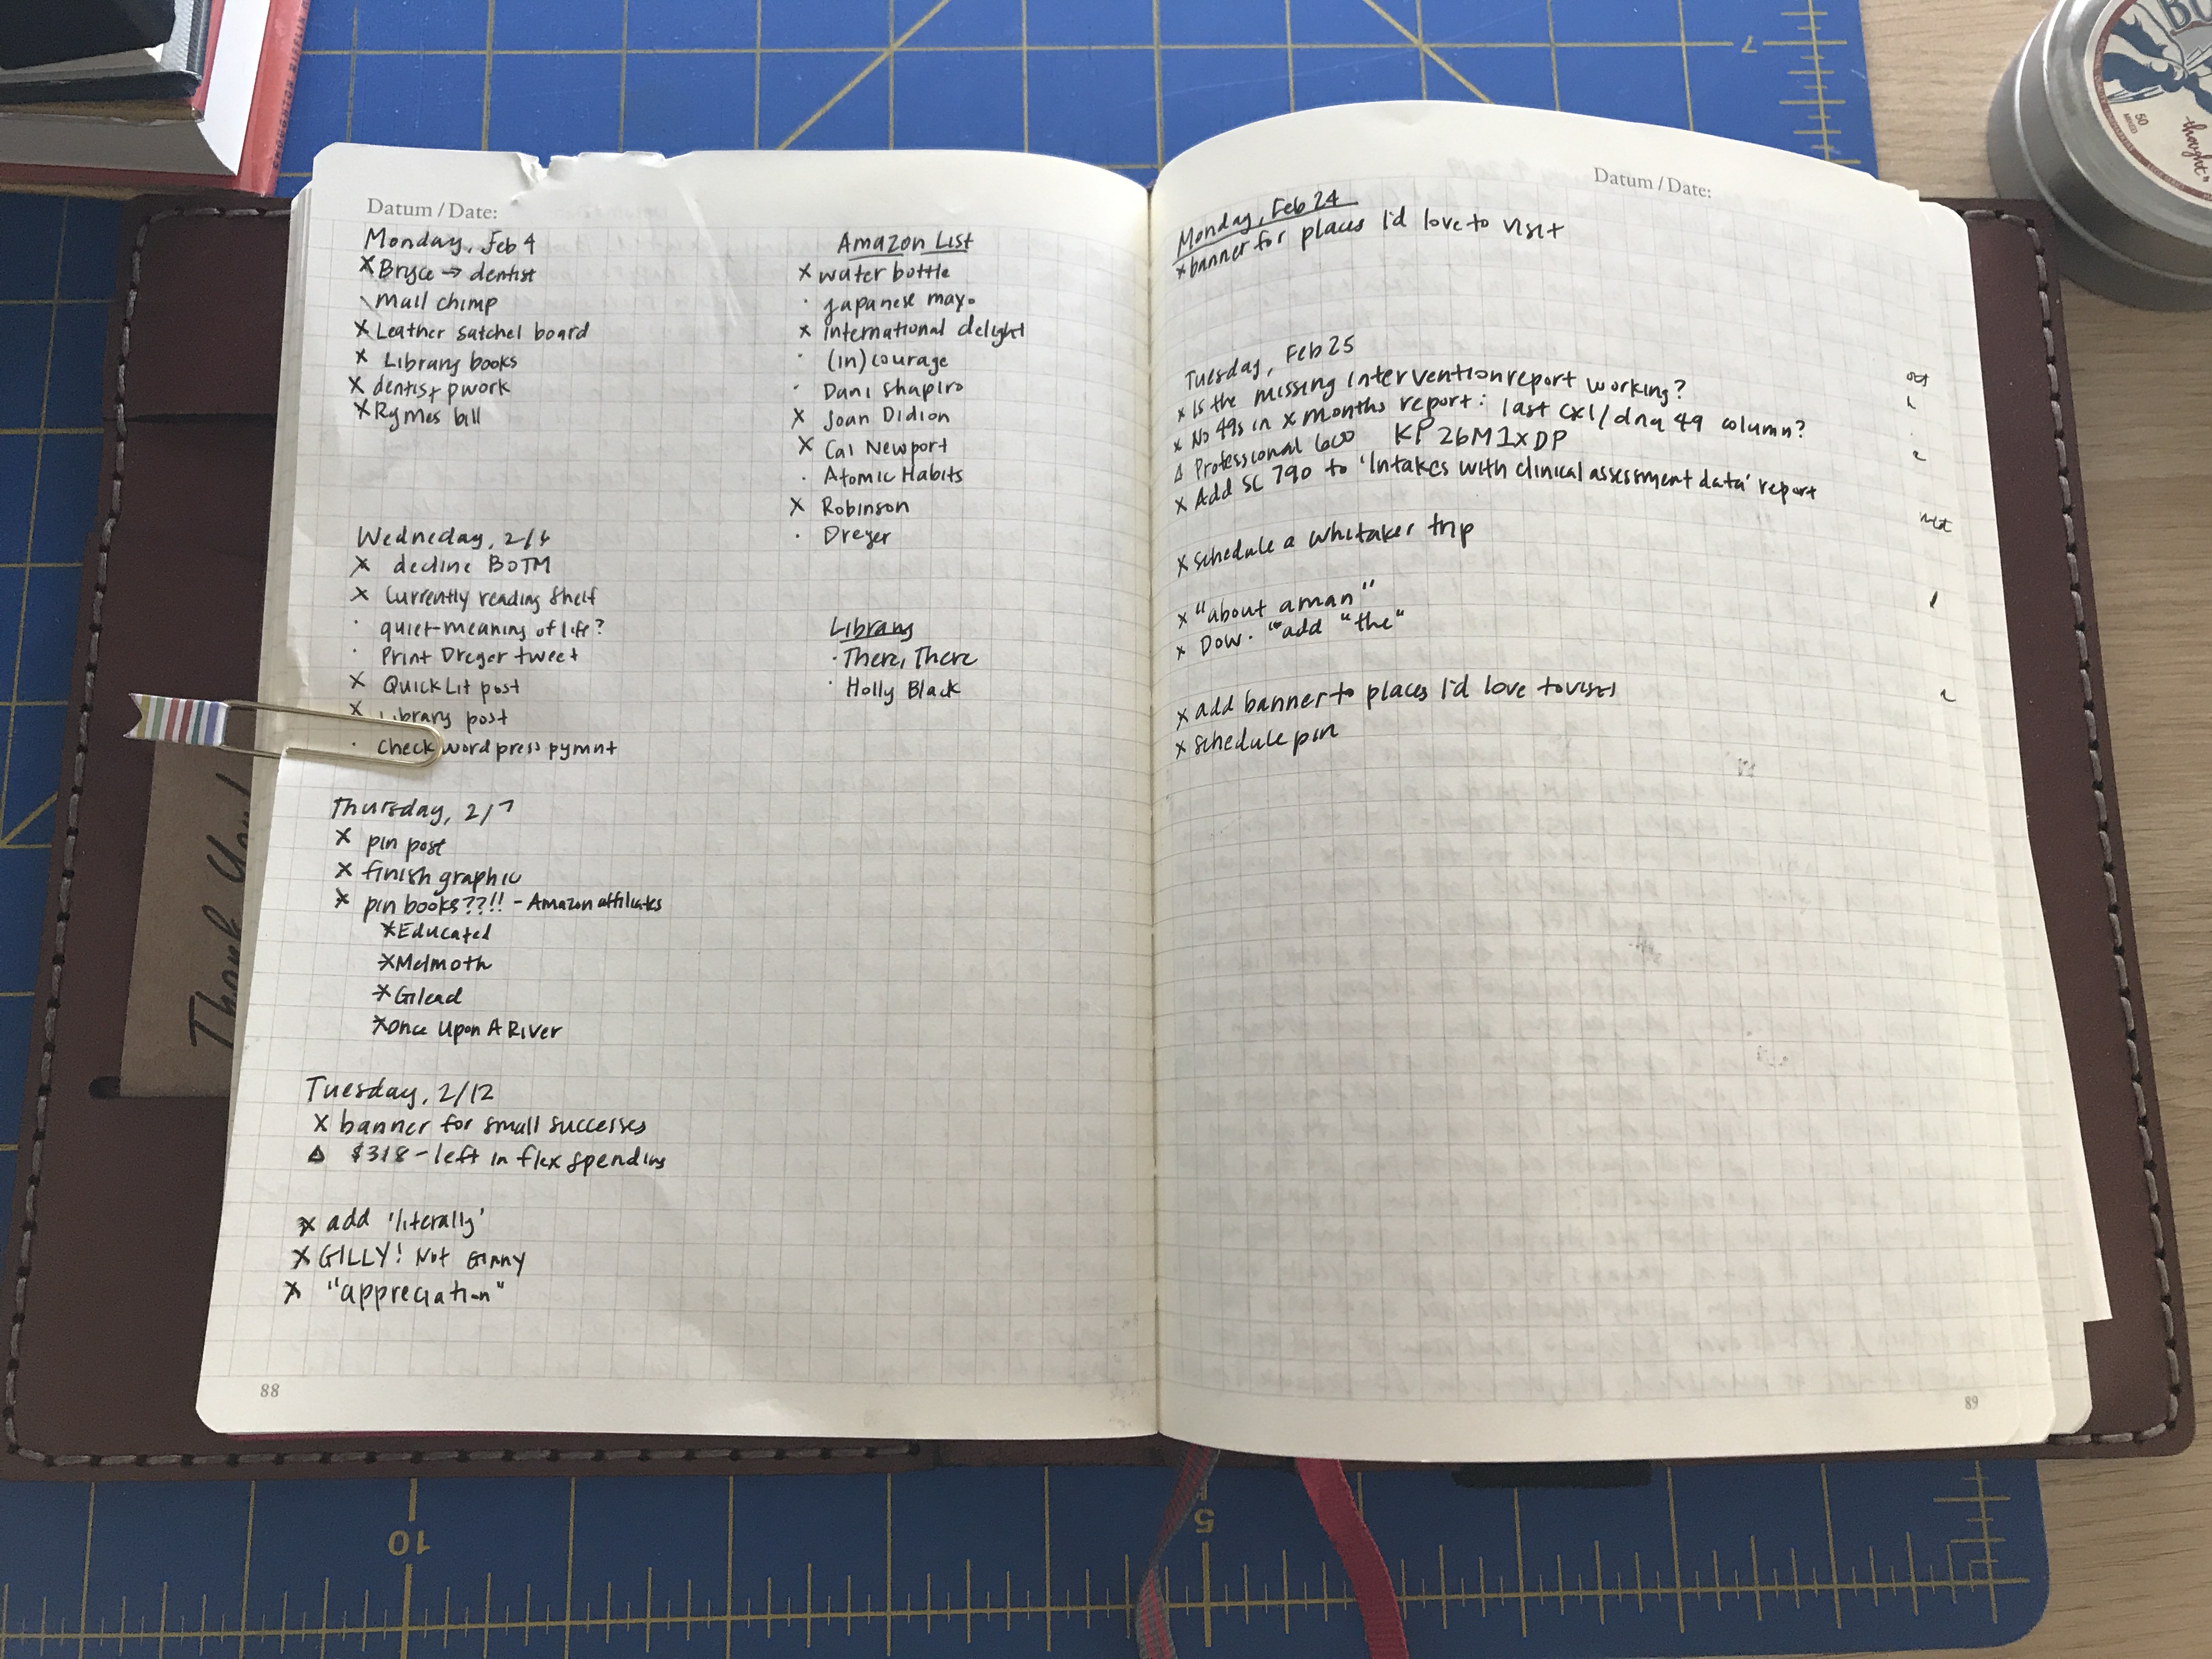 Datum / Date:
Monday, Feb 4
x Bryce → dentist
\ Mail chimp
x Leather satchel board
x Library books
x dentist pwork
x Rymes bill
Wedneday, 2/6
x decline BOTM
x Currently reading shelf
· quiet-meaning of life?
· Print Dreyer tweet
x Quick Lit post
x Library post
· Check wordpress pymnt
Thursday, 2/7
x pin post
x finish graphic
x pin books??!! - Amazon affiliates
x Educated
x Melmoth
x Gilead
x Once Upon A River
Tuesday, 2/12
x banner for small successes
Δ $318 - left in flex spending
x add 'literally'
x GILLY! Not Ginny
x "appreciation"
88
Amazon List
x water bottle
· Japanese mayo
x International delight
· (in)courage
· Dani Shapiro
x Joan Didion
x Cal Newport
· Atomic Habits
x Robinson
· Dreyer
Library
· There, There
· Holly Black
Datum / Date:
Monday, Feb 24
x banner for places I'd love to visit
Tuesday, Feb 25
x Is the missing intervention report working?
x No 49s in x months report: last cxl/dna 49 column?
Δ Professional 600 KP26M1XDP
x Add SC 790 to 'Intakes with clinical assessment data' report
x schedule a Whitaker trip
x "about a man"
x Dow. "add "the"
x add banner to places I'd love to visit
x schedule pin
89
Thank You!
7
10
5
50
thought"